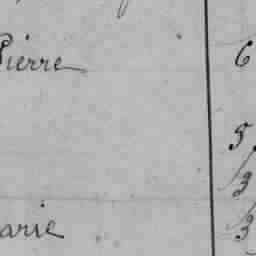 Pierre 6
5
3
arie 3